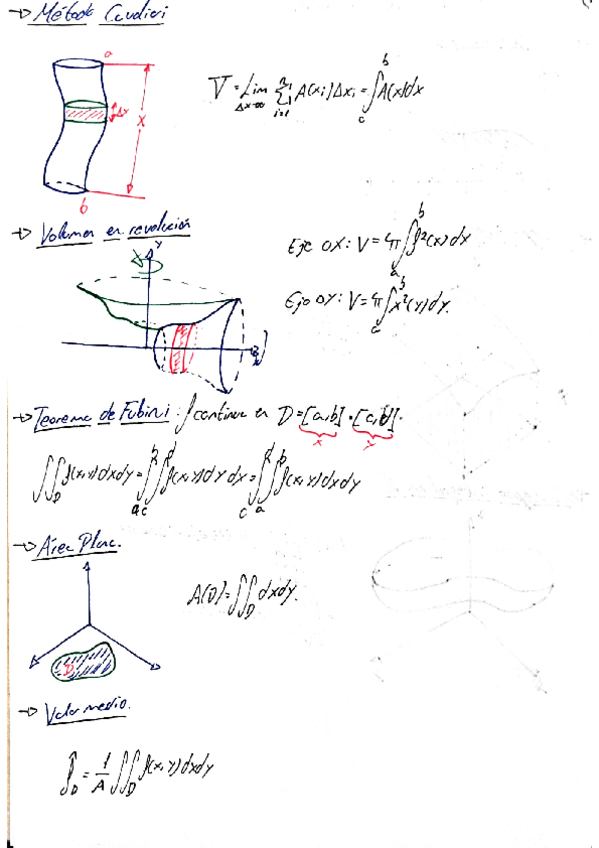 → Método Cavalieri
a
Δx
X
b
V = Lim Δx→∞ Σ i=1 n A(xi)Δxi = ∫ A(x)dx
→ Volumen en revolución
Y
Eje OX: V = π ∫ₐᵇ f²(x) dx
Eje OY: V = π ∫ₐᵇ x²(y) dy.
→ Teorema de Fubini: f continua en D = [a,b] · [c,d].
x y
∫∫_D f(x,y) dxdy = ∫ₐᵇ ∫_c^d f(x,y) dy dx = ∫_c^d ∫ₐᵇ f(x,y) dxdy
→ Área Plana.
D
A(D) = ∫∫_D dxdy.
→ Valor medio.
f_D = 1/A ∫∫_D f(x,y) dxdy